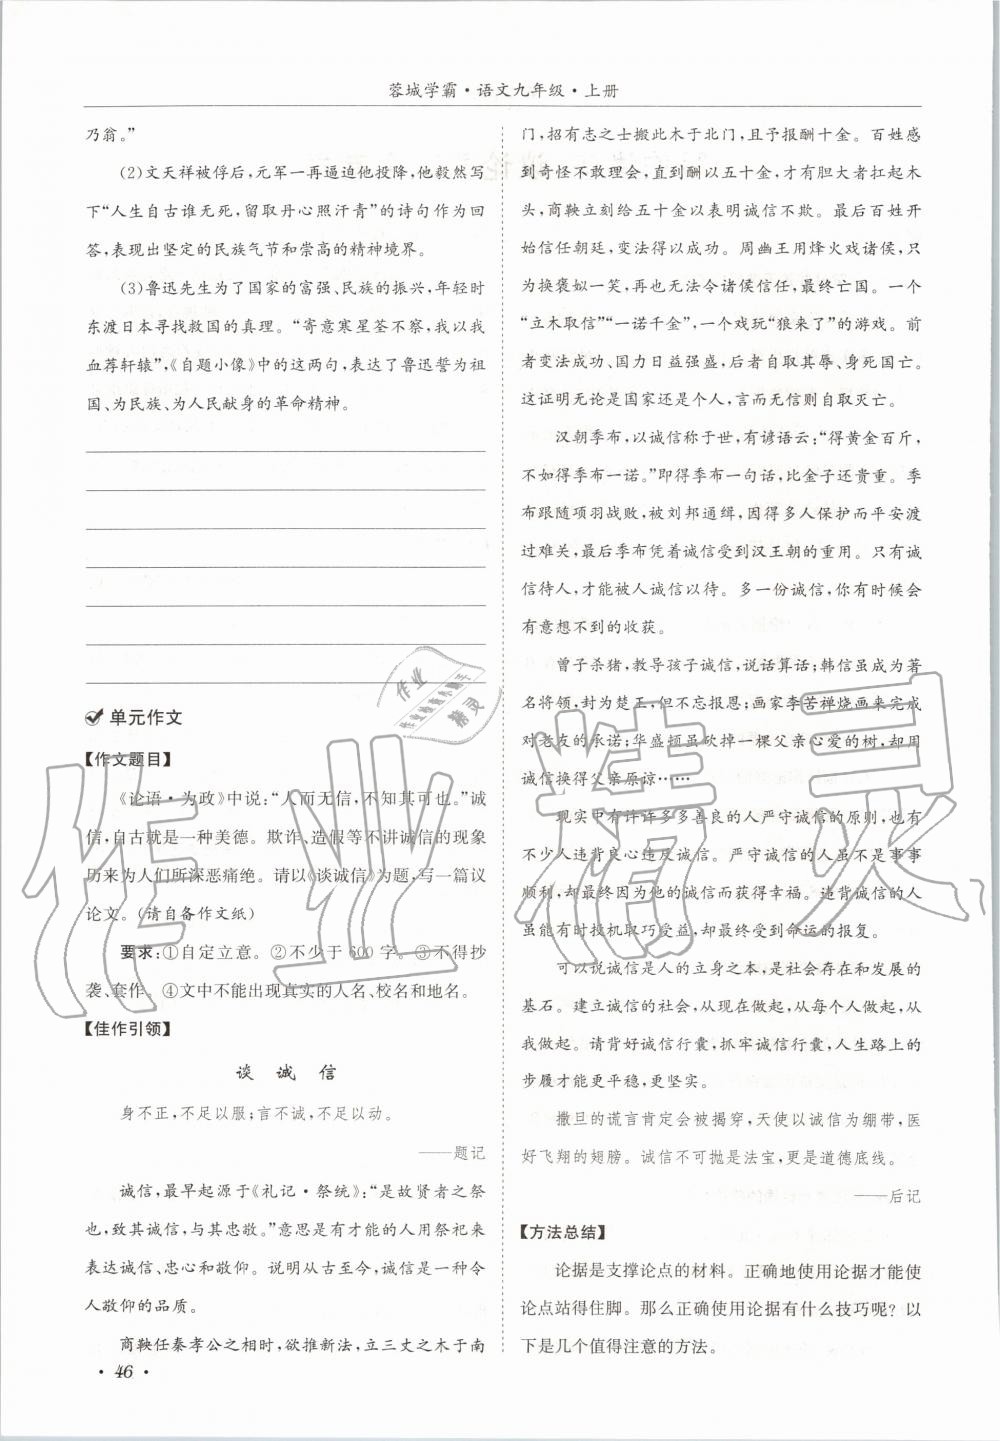 蓉城学霸·语文九年级·上册
乃翁。”
(2)文天祥被俘后,元军一再逼迫他投降,他毅然写
下“人生自古谁无死,留取丹心照汗青”的诗句作为回
答,表现出坚定的民族气节和崇高的精神境界。
(3)鲁迅先生为了国家的富强、民族的振兴,年轻时
东渡日本寻找救国的真理。“寄意寒星荃不察,我以我
血荐轩辕”,《自题小像》中的这两句,表达了鲁迅誓为祖
国、为民族、为人民献身的革命精神。
单元作文
【作文题目】
《论语·为政》中说:“人而无信,不知其可也。”诚
信,自古就是一种美德。欺诈、造假等不讲诚信的现象
历来为人们所深恶痛绝。请以《谈诚信》为题,写一篇议
论文。(请自备作文纸)
要求:①自定立意。②不少于600字。③不得抄
袭、套作。④文中不能出现真实的人名、校名和地名。
【佳作引领】
谈 诚 信
身不正,不足以服;言不诚,不足以动。
——题记
诚信,最早起源于《礼记·祭统》:“是故贤者之祭
也,致其诚信,与其忠敬。”意思是有才能的人用祭祀来
表达诚信、忠心和敬仰。说明从古至今,诚信是一种令
人敬仰的品质。
商鞅任秦孝公之相时,欲推新法,立三丈之木于南
门,招有志之士搬此木于北门,且予报酬十金。百姓感
到奇怪不敢理会,直到酬以五十金,才有胆大者扛起木
头,商鞅立刻给五十金以表明诚信不欺。最后百姓开
始信任朝廷,变法得以成功。周幽王用烽火戏诸侯,只
为换褒姒一笑,再也无法令诸侯信任,最终亡国。一个
“立木取信”“一诺千金”,一个戏玩“狼来了”的游戏。前
者变法成功、国力日益强盛,后者自取其辱、身死国亡。
这证明无论是国家还是个人,言而无信则自取灭亡。
汉朝季布,以诚信称于世,有谚语云:“得黄金百斤,
不如得季布一诺。”即得季布一句话,比金子还贵重。季
布跟随项羽战败,被刘邦通缉,因得多人保护而平安渡
过难关,最后季布凭着诚信受到汉王朝的重用。只有诚
信待人,才能被人诚信以待。多一份诚信,你有时候会
有意想不到的收获。
曾子杀猪,教导孩子诚信,说话算话;韩信虽成为著
名将领,封为楚王,但不忘报恩;画家李苦禅烧画来完成
对老友的承诺;华盛顿虽砍掉一棵父亲心爱的树,却用
诚信换得父亲原谅……
现实中有许许多多善良的人严守诚信的原则,也有
不少人违背良心违反诚信。严守诚信的人虽不是事事
顺利,却最终因为他的诚信而获得幸福。违背诚信的人
虽能有时投机取巧受益,却最终受到命运的报复。
可以说诚信是人的立身之本,是社会存在和发展的
基石。建立诚信的社会,从现在做起,从每个人做起,从
我做起。请背好诚信行囊,抓牢诚信行囊,人生路上的
步履才能更平稳,更坚实。
撒旦的谎言肯定会被揭穿,天使以诚信为绷带,医
好飞翔的翅膀。诚信不可抛是法宝,更是道德底线。
——后记
【方法总结】
论据是支撑论点的材料。正确地使用论据才能使
论点站得住脚。那么正确使用论据有什么技巧呢?以
下是几个值得注意的方法。
·46·
作业精灵